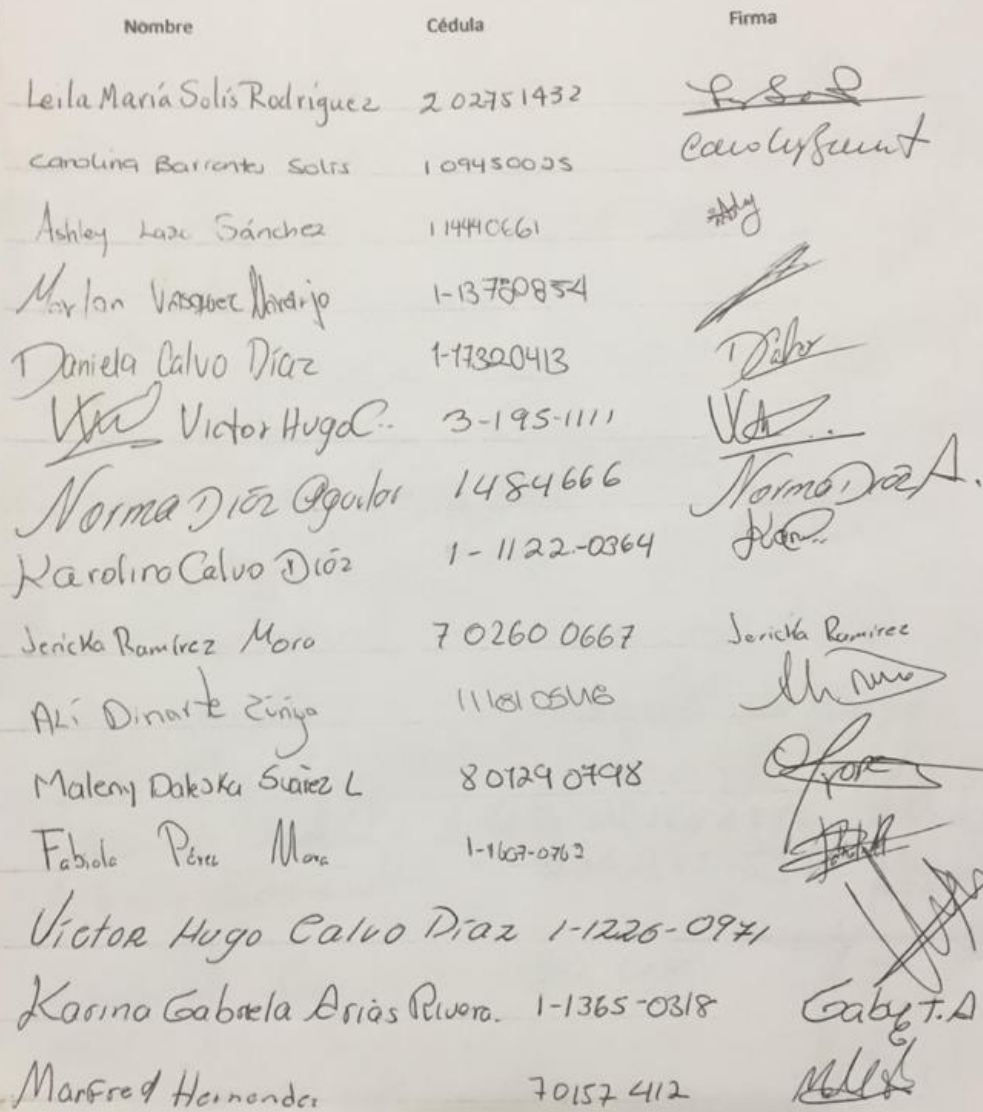 Nombre Cédula Firma
Leila María Solís Rodríguez 202751432
Carolina Barrantes Solís 109450025
Ashley Sánchez
Marlon Vásquez Naranjo 1-13780854
Daniela Calvo Díaz 1-17320413
Victor Hugo C. 3-195-1111
Norma Díaz Aguilar 1484666 Norma Díaz A.
Karolina Calvo Díaz 1-1122-0364
Jericka Ramírez Mora 7 0260 0667 Jericka Ramirez
Alí Dinarte Zúñiga
Maleny Daleska Suárez L 801290798
Fabiola Pérez Mora 1-1607-0762
Victor Hugo Calvo Díaz 1-1226-0971
Karina Gabriela Arias Rivera. 1-1365-0318 Gaby T.A
Manfred Hernandez 70157412